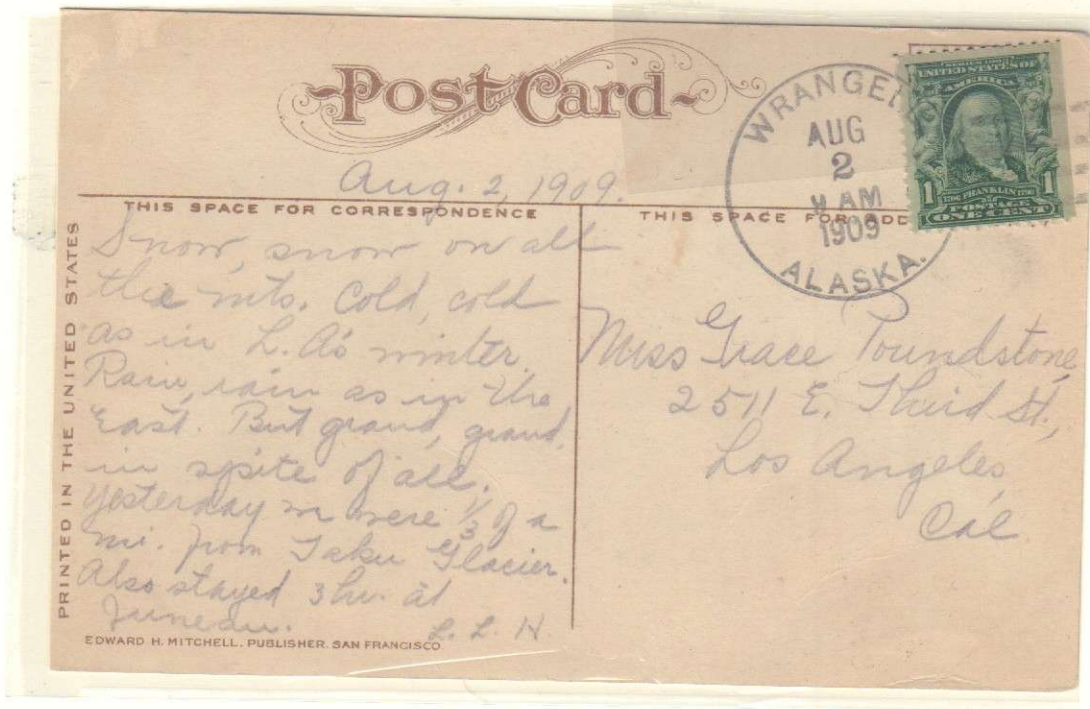 Post Card
WRANGELL
AUG
2
AM
1909
ALASKA.
UNITED STATES OF
AMERICA
1 FRANKLIN 1
POSTAGE
ONE CENT
Aug. 2, 1909.
THIS SPACE FOR CORRESPONDENCE
THIS SPACE FOR ADD
PRINTED IN THE UNITED STATES
Snow, snow on all
the mts. Cold, cold
as in L. A's winter.
Rain, rain as in the
East. But grand, grand,
in spite of all.
Yesterday we were 1/3 of a
mi. from Taku Glacier.
Also stayed 3 hr. at
Juneau.
L. L. H.
Miss Grace Poundstone,
2511 E. Third St.,
Los Angeles,
Cal.
EDWARD H. MITCHELL, PUBLISHER, SAN FRANCISCO